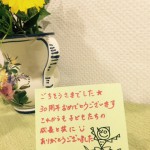 ごちそうさまでした☆
30周年おめでとうございます
これからも子どもたちの
成長と共に
ありがとうございました